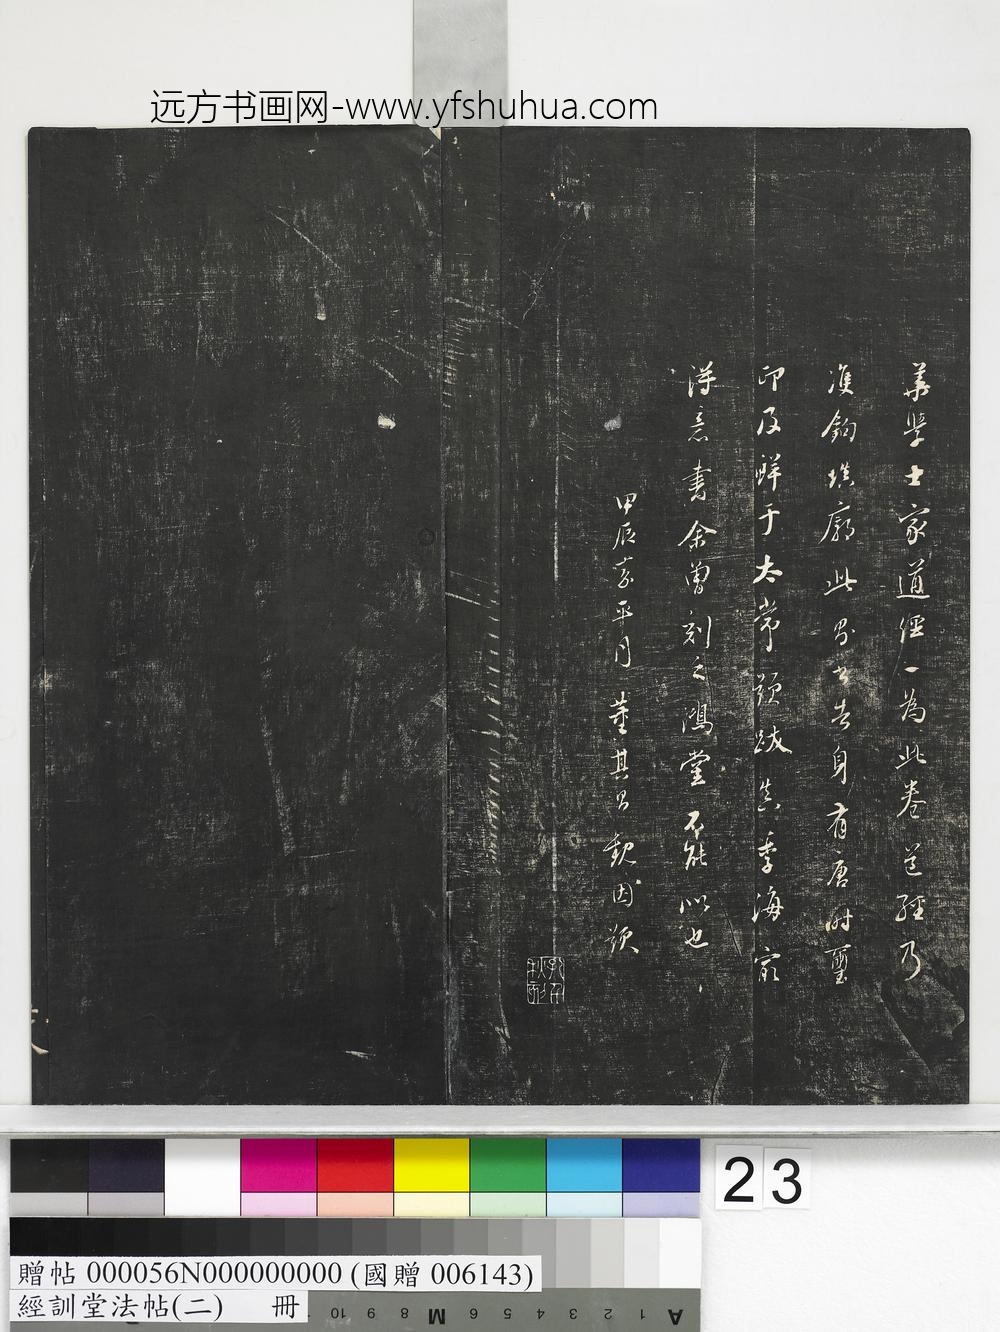 远方书画网-www.yfshuhua.com
華學士家道經一為此卷道經乃
雙鉤填廓此則書告身有唐時璽
印及鮮于太常題跋真季海家
得意書余曾刻之鴻堂不能似也
甲辰嘉平月董其昌觀因題
23
贈帖 000056N000000000 (國贈 006143)
經訓堂法帖(二) 冊
10 9 8 M 6 5 4 3 2 1 A